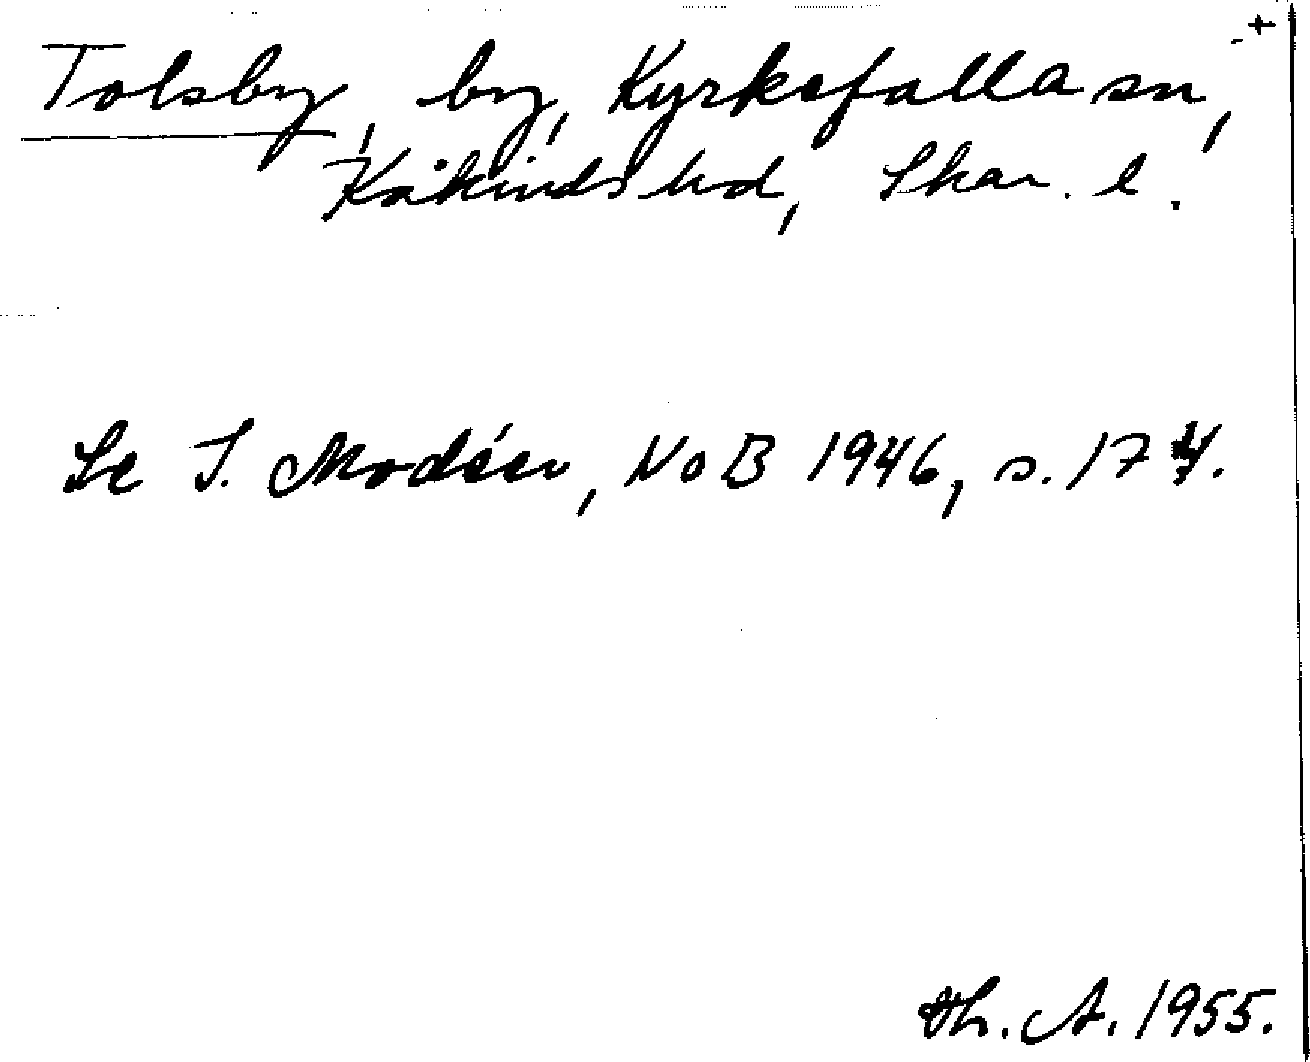 +
Tolsby, by, Kyrkefalla sn,
Kåkinds hd, Skar. l.
Se I. Modéer, NoB 1946, s. 174.
Th. A. 1955.